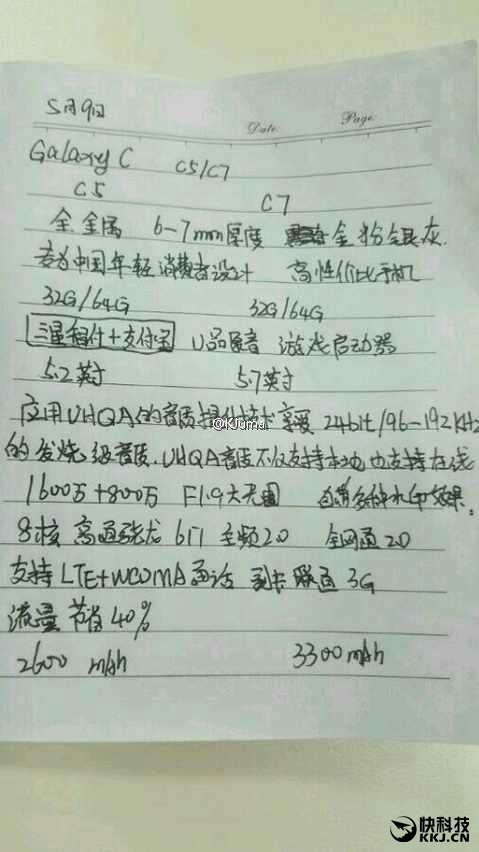 5月9日
Date.
Page.
Galaxy C C5/C7
C5 C7
全金属 6-7mm厚度 金粉银灰.
专为中国年轻消费者设计 高性价比手机
32G/64G 32G/64G
三星智付+支付宝 U品医音 游戏启动器
5.2英寸 5.7英寸
@KJuma
应用UHQA的音质提升技术 享受 24bit/96-192KHz
的发烧级音质.UHQA音质不仅支持本地也支持在线
1600万+800万 F1.9大光圈 自带多种水印效果.
8核 高通骁龙 617 主频2.0 全网通 2.0
支持LTE+WCDMA通话 副卡联通3G
流量节省40%
2600 mAh 3300mAh
快科技
KKJ.CN